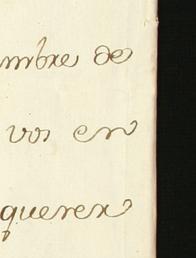 mbre de
vos en
querer